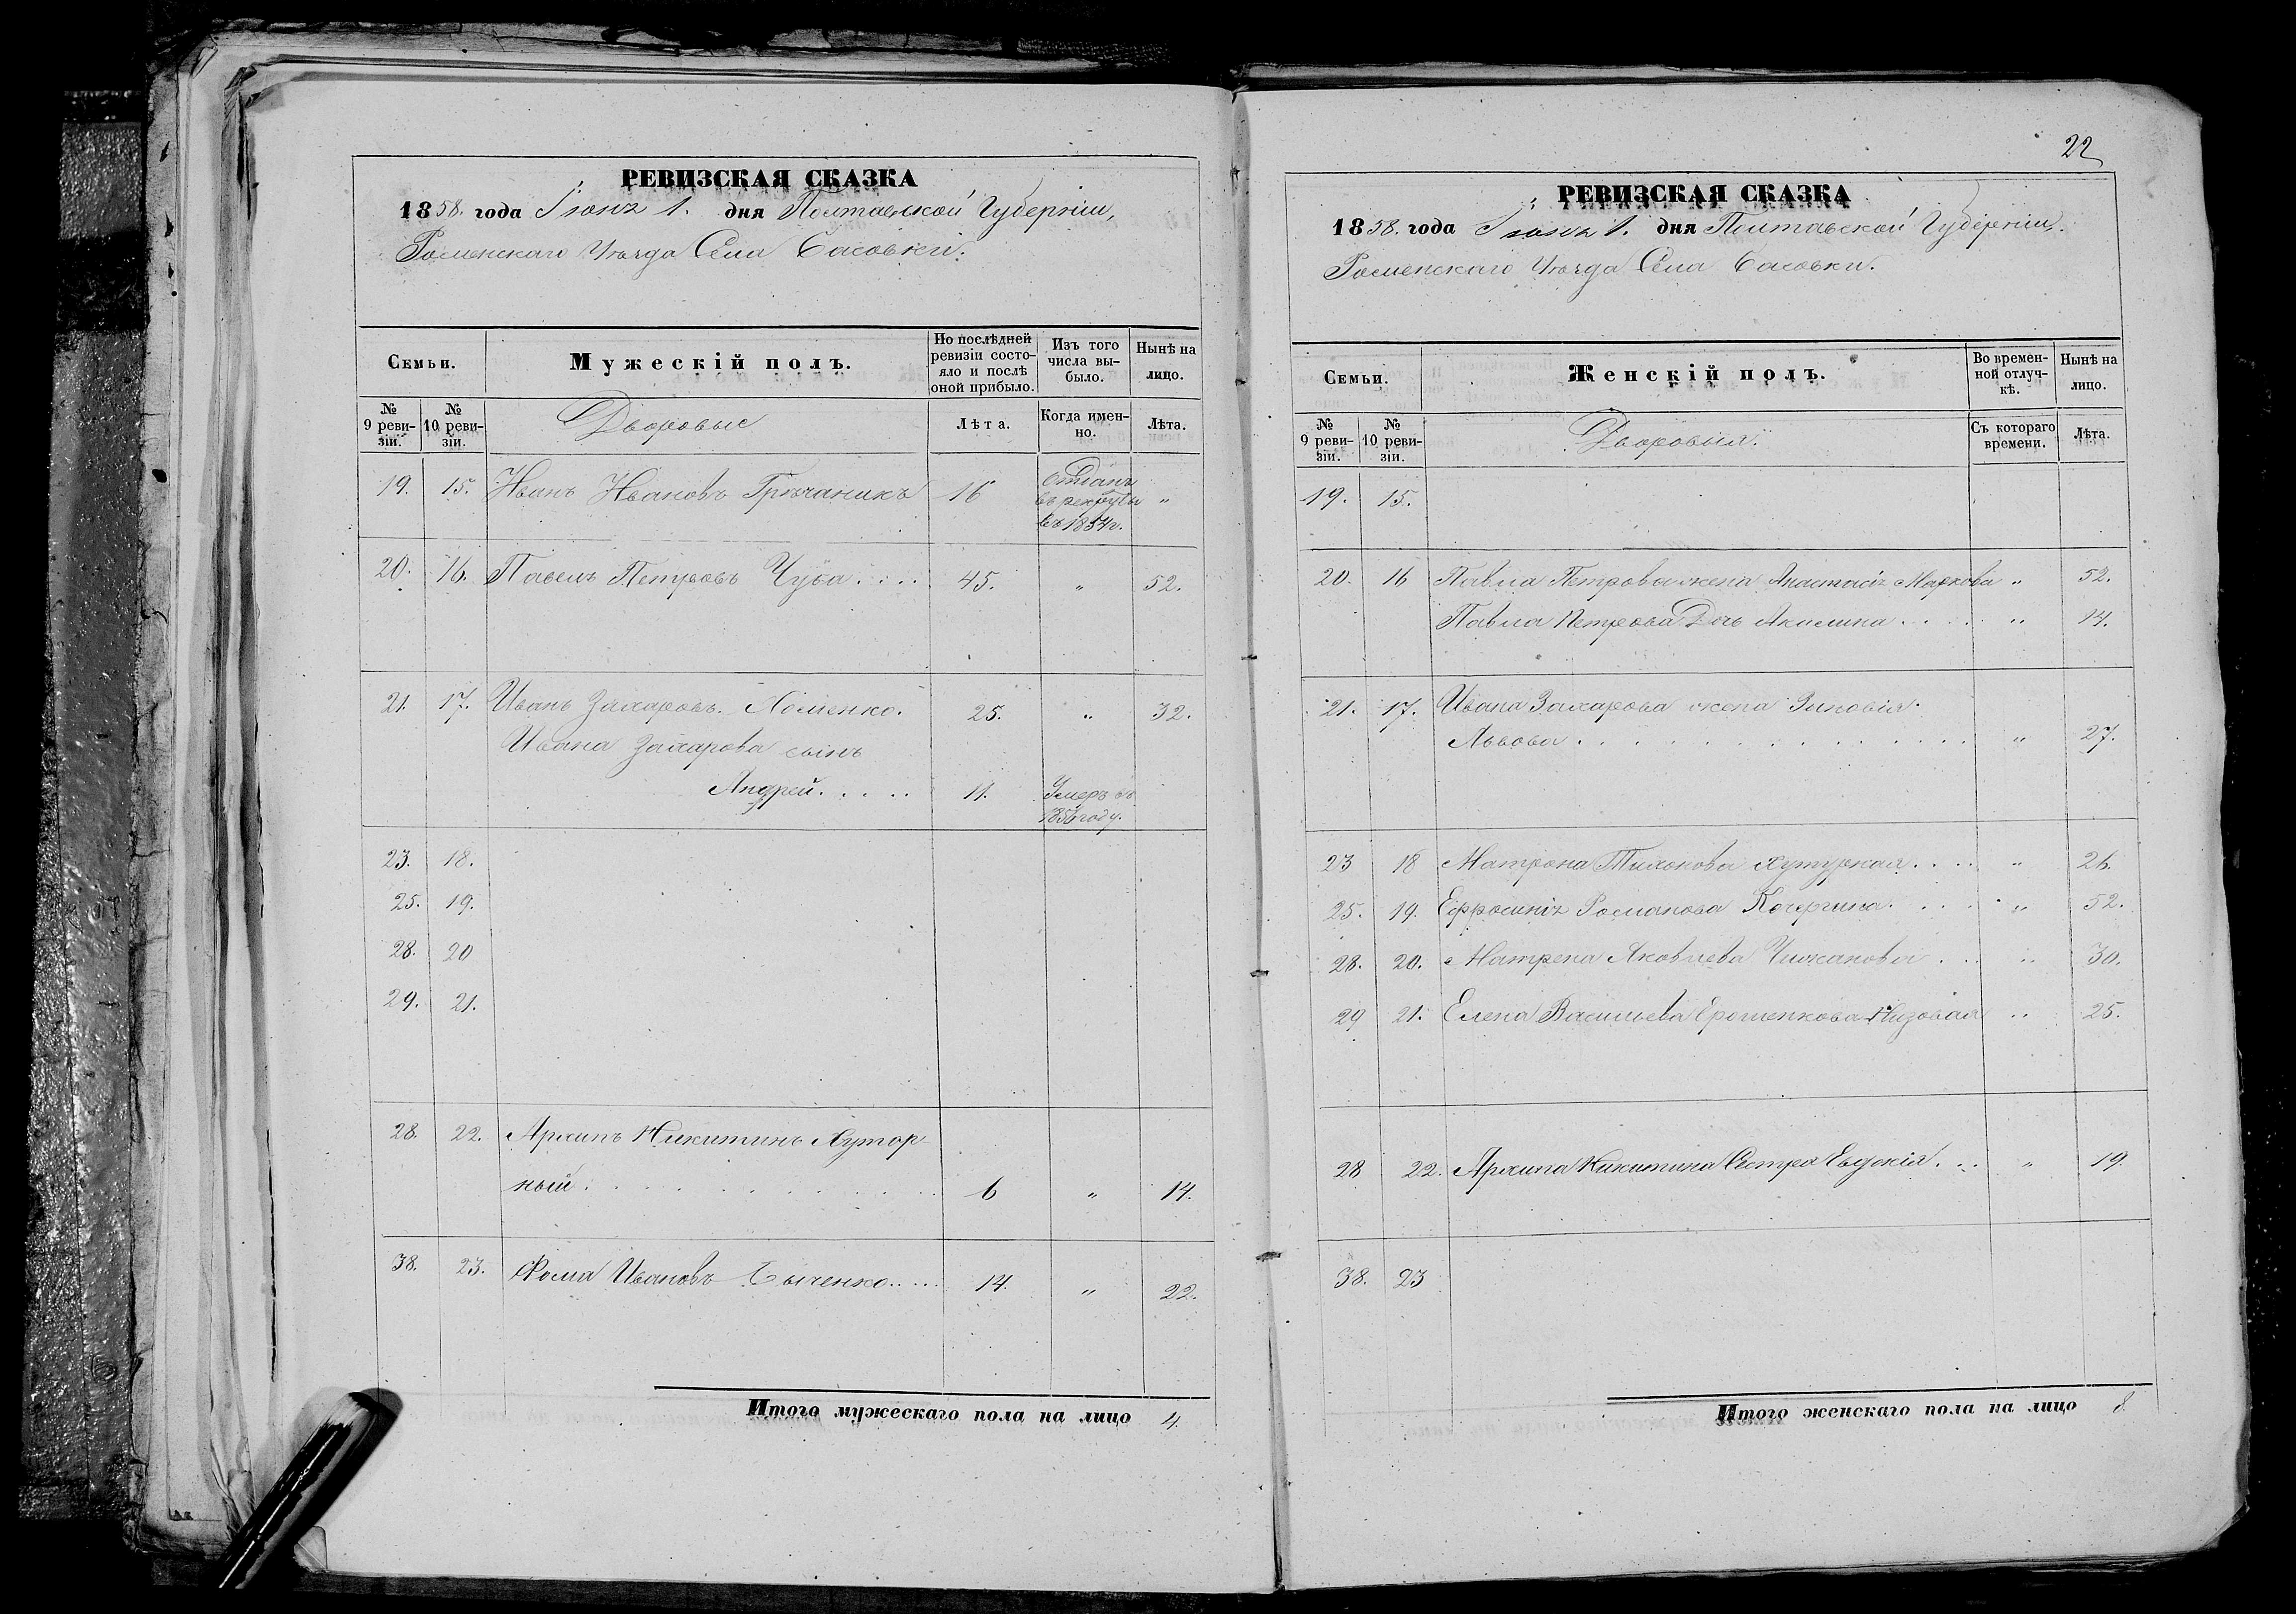 РЕВИЗСКАЯ СКАЗКА
1858. года Іюня 1. дня Полтавской Губерніи,
Роменскаго Уѣзда Села Басовки.
Семьи.
Мужескій полъ.
По послѣдней ревизіи состояло и послѣ оной прибыло.
Изъ того числа выбыло.
Нынѣ на лицо.
№ 9 ревизіи.
№ 10 ревизіи.
Дворовые
Лѣта.
Когда именно.
Лѣта.
19. 15. Иванъ Ивановъ Гречаникъ 16 Отданъ въ рекруты въ 1854г. „
20. 16. Павелъ Петровъ Чуба.... 45. „ 52.
21. 17. Иванъ Захаровъ Хоменко. 25. „ 32.
Ивана Захарова сынъ
Андрей..... 11. Умеръ въ 1856 году.
23. 18.
25. 19.
28. 20
29. 21.
28. 22. Архипъ Никитинъ Хутор-
ный. 6 „ 14.
38. 23. Фома Ивановъ Быченко..... 14. „ 22.
Итого мужескаго пола на лицо 4.
22
РЕВИЗСКАЯ СКАЗКА
1858. года Іюня 1. дня Полтавской Губерніи.
Роменскаго Уѣзда Села Басовки.
Семьи.
Женскій полъ.
Во временной отлучкѣ.
Нынѣ на лицо.
№ 9 ревизіи.
№ 10 ревизіи.
Дворовыя.
Съ котораго времени.
Лѣта.
19. 15.
20. 16 Павла Петрова жена Анастасія Маркова „ 52.
Павла Петрова Дочь Акилина..... „ 14.
21. 17. Ивана Захарова жена Зиновія
Львова............. „ 27.
23 18 Матрона Тихонова Хуторная.... „ 26.
25. 19. Ефросинія Романова Кочергина..... „ 52.
28. 20. Матрена Яковлева Чижанова... „ 30.
29 21. Елена Васильева Ерошенкова Низовая „ 25.
28 22. Архипа Никитина Сестра Евдокія... „ 19.
38. 23
Итого женскаго пола на лицо 8.